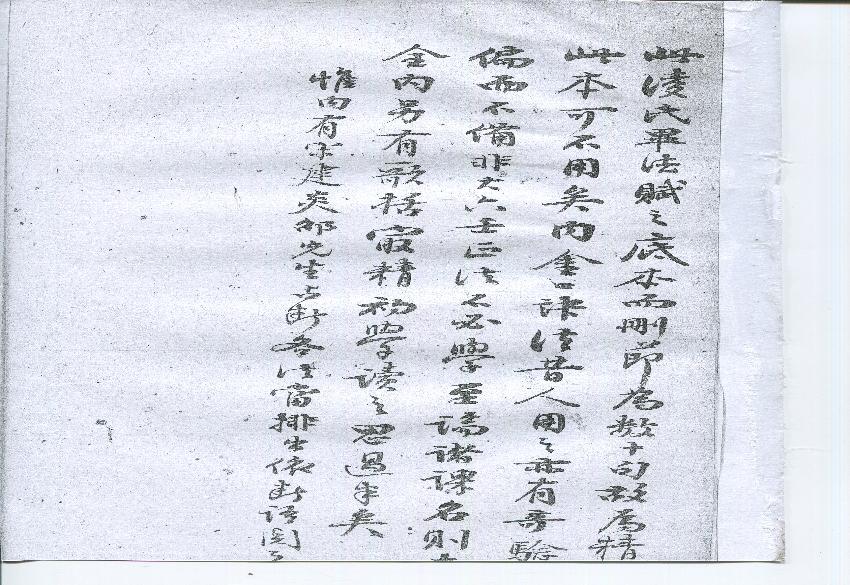 此凌氏畢法賦之底本而刪節為數十句故為精
此本可不用矣內金口訣法昔人用之亦有奇驗
偏而不備非大六壬正法不必學至論諸課名則
全內另有歌括最精初學讀之思過半矣
惟內有宋建炎邵先生占斷各法當排出依斷語閱